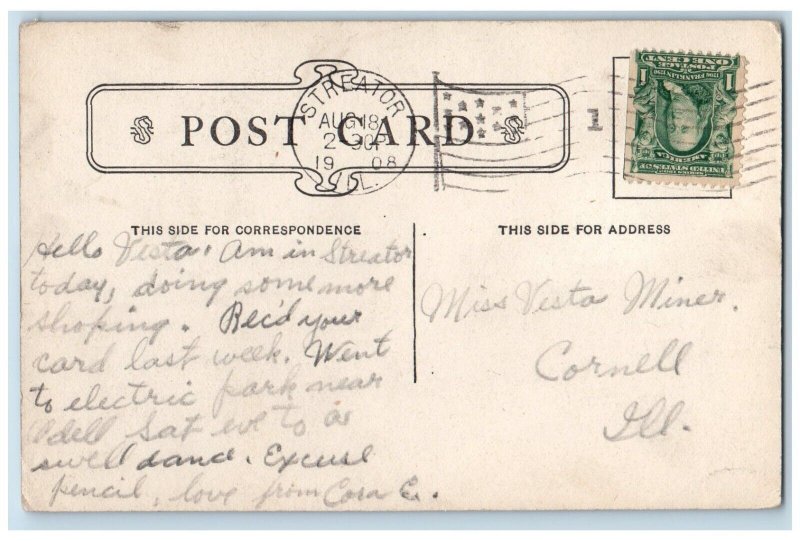 STREATOR
AUG 18
2 30P
19 08
ILL.
POST CARD
1
1 1
POSTAGE
ONE CENT
1706 FRANKLIN 1790
UNITED STATES OF
AMERICA
THIS SIDE FOR CORRESPONDENCE
THIS SIDE FOR ADDRESS
Hello Vesta. Am in Streator
today, doing some more
shoping. Rec'd your
card last week. Went
to electric park near
Odell Sat eve to a
swell dance. Excuse
pencil, love from Cora E.
Miss Vesta Miner.
Cornell
Ill.